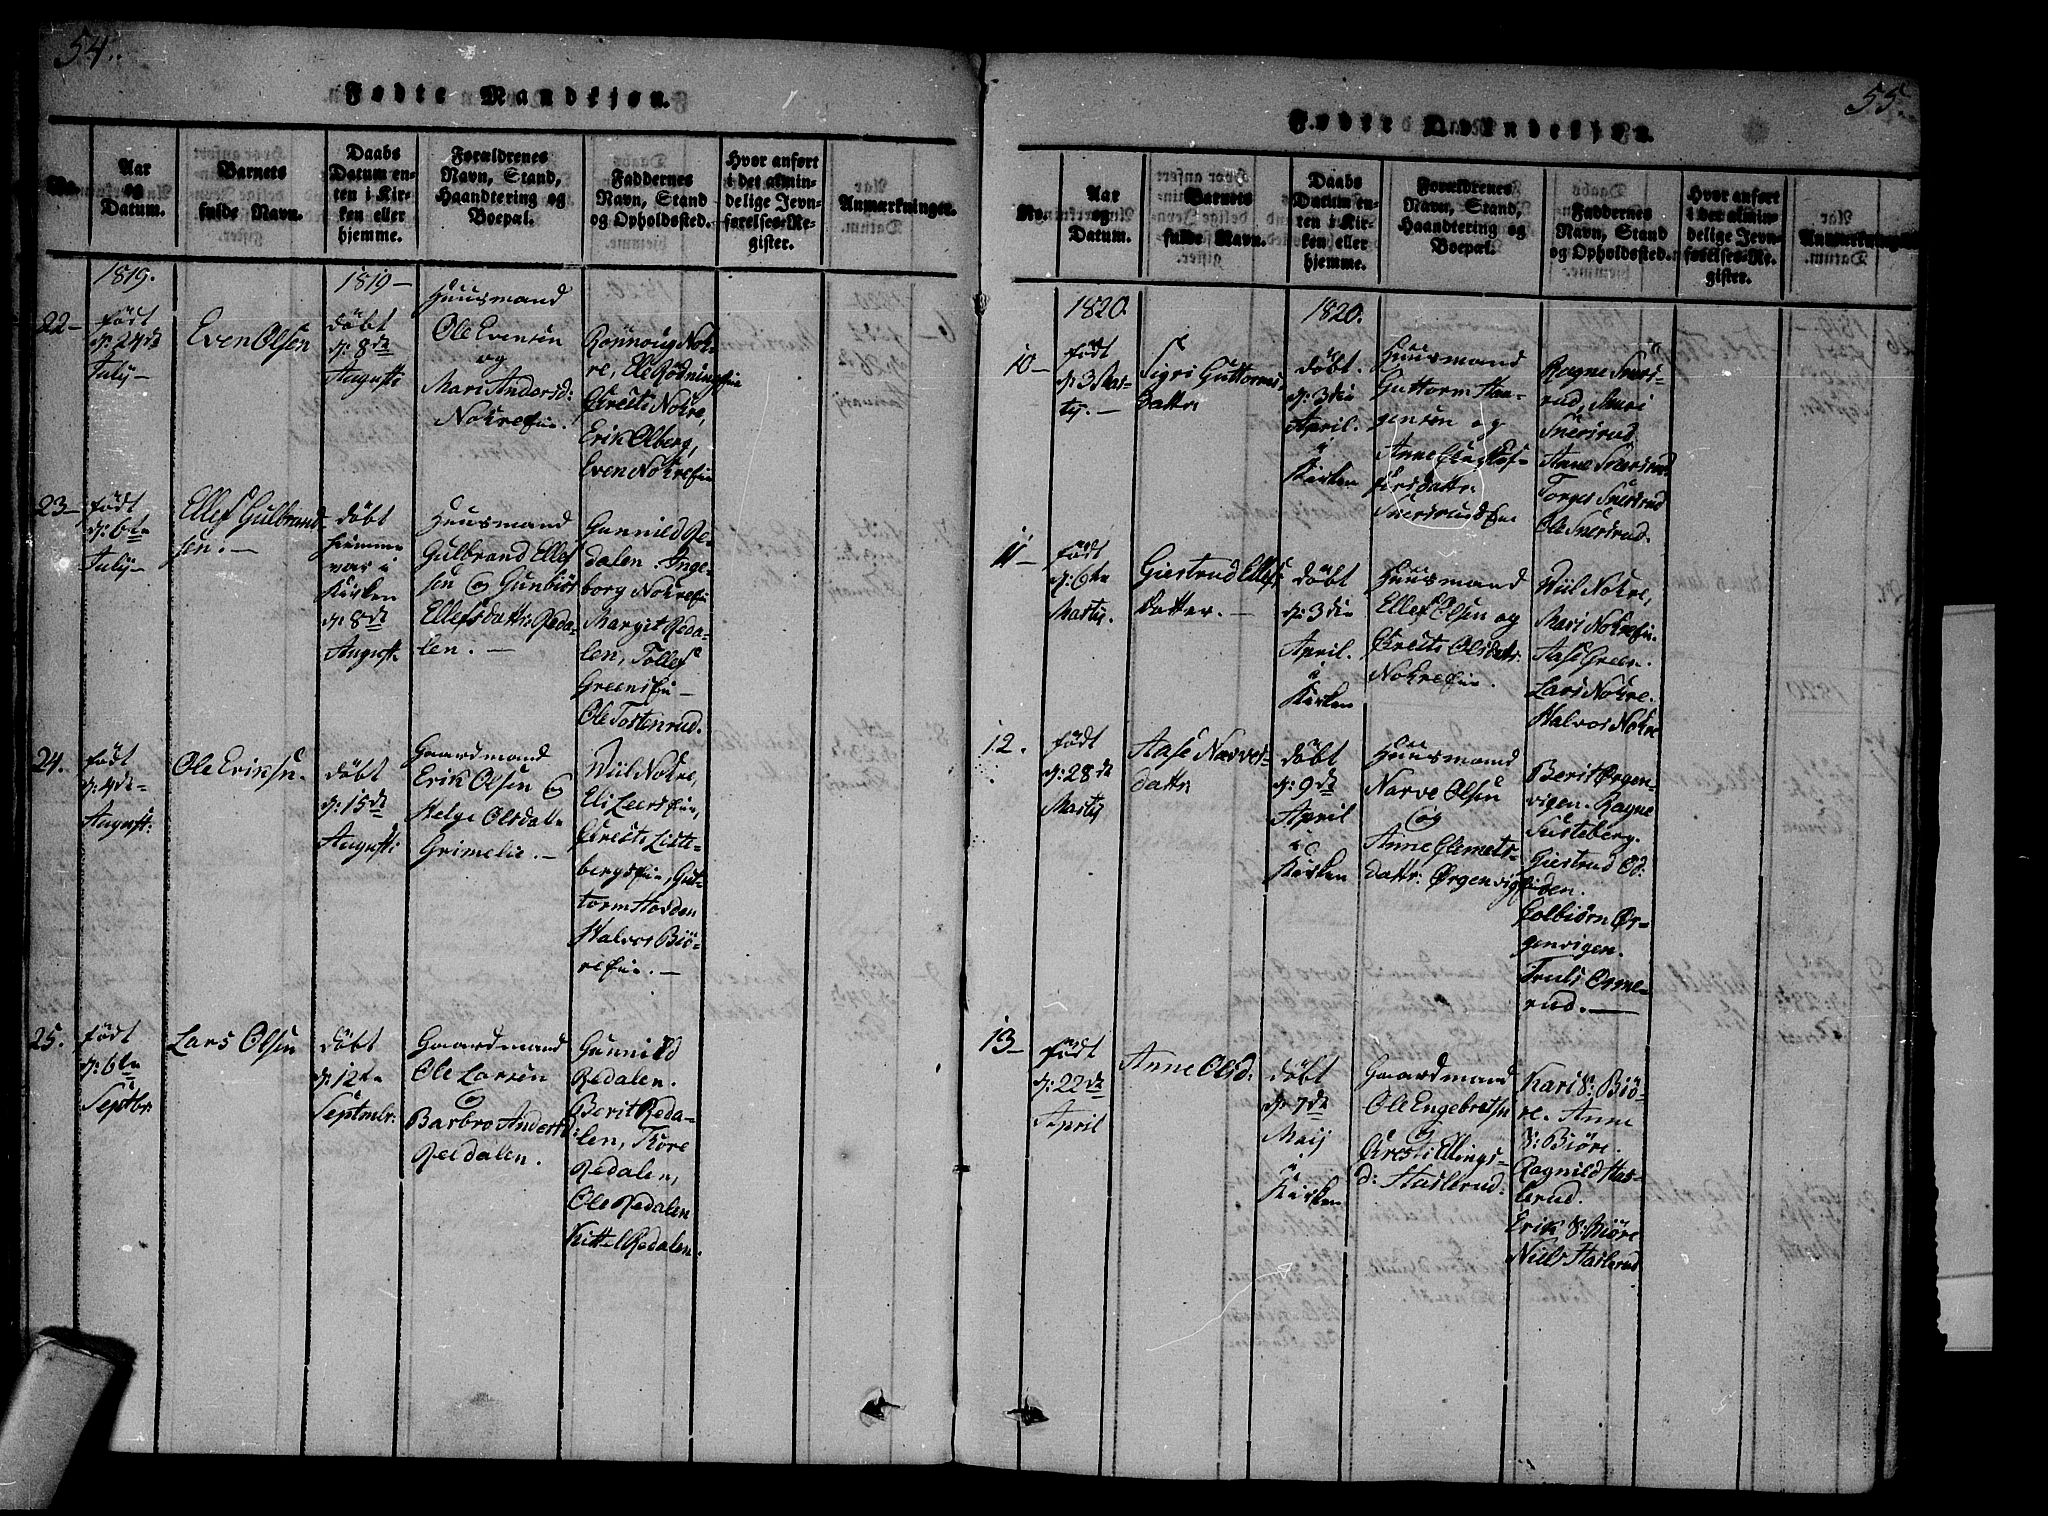 54.
Fødte Mandkjøn.
No.
Aar
og
Datum.
Barnets
fulde Navn.
Daabs
Datum en-
ten i Kir-
ken eller
hjemme.
Forældrenes
Navn, Stand,
Haandtering og
Boepæl.
Faddernes
Navn, Stand
og Opholdssted.
Hvor anført
i det almin-
delige Jevn-
førelses-Re-
gister.
Anmærkninger.
1819.
1819 –
22 –
født
d: 24de
July –
Even Olsen
døbt
d: 8de
Augusti
Huusmand
Ole Evensen
og
Mari Andersd:
Nokre
Rønnoug Nok-
re,
Nokre,
Erik Olberg,
Even Nokre
23 –
født
d: 6te
July –
Ellef Gulbrand-
sen. –
døbt
hiemme
var i
Kirken
d: 8de
August.
Huusmand
Gulbrand Ellef-
sen og Gunbiør
Ellefsdattr: Reda-
len. –
Gunnild Re-
dalen. Inge-
borg Nokre
Margit Reda-
len, Tollef
Green
Ole Tostenrud.
24.
født
d: 4de
August:
Ole Eriksen.
døbt
d: 15de
Augusti
Gaardmand
Erik Olsen og
Helge Olsdatr
Grimelie. –
Nokre,
Eli
torm Hovden
Halvor Biø-
re
25.
født
d: 6te
Septbr:
Lars Olsen
døbt
d: 12te
Septembr:
Gaardmand
Ole Larsen
og
Barbro Andersd:
Reedalen.
Gunnild
Redalen.
Berit Reda-
len, Thore
Redalen,
Ole Redalen
Kittel Redalen.
55.
Fødte Qvindekjøn.
No.
Aar
og
Datum.
Barnets
fulde Navn.
Daabs
Datum en-
ten i Kir-
ken eller
hjemme.
Forældrenes
Navn, Stand,
Haandtering og
Boepæl.
Faddernes
Navn, Stand
og Opholdssted.
Hvor anført
i det almin-
delige Jevn-
førelses-Re-
gister.
Anmærkninger
1820.
1820.
10 –
født
d: 3 Mar-
tij. –
Sigri Guttorms
datter
døbt
d: 3die
April.
i
Kirken
Huusmand
Guttorm Haa-
gensen og
Anne
fersdattr:
Snersrud
Ragne Sners-
rud,
Snersrud
Anne Snersrud
Torger Snersrud
Ole Snersrud.
11 –
født
d: 6te
Martij.
Giertrud Ellefs-
datter. –
døbt
d: 3die
April.
i
Kirken
Huusmand
Ellef Olsen og
Olsdatr:
Nokre
Nokre,
Mari Nokre
Aase Green.
Lars Nokre.
Halvor Nokre
12.
født
d: 28de
Martij
Aase Narves-
dattr
døbt
d: 9de
April
i
Kirken
Huusmand
Narve Olsen
og
Anne Clemets-
dattr: Ørgenvig
Berit Ørgen-
vigen. Ragne
Susteberg.
Giertrud Ød:
den.
Kolbiørn Ør-
genvigen.
Truls
rud. –
13 –
født
d: 22de
April
Anne Olsd:
døbt
d: 7de
Maij
i
Kirken
Gaardmand
Ole Engebretsen
og
Ellings-
d: Haslerud:
Kari S: Biø-
re. Anne
S: Biøre.
Ragnild Has-
lerud.
Erik S: Biøre
Niels Haslerud